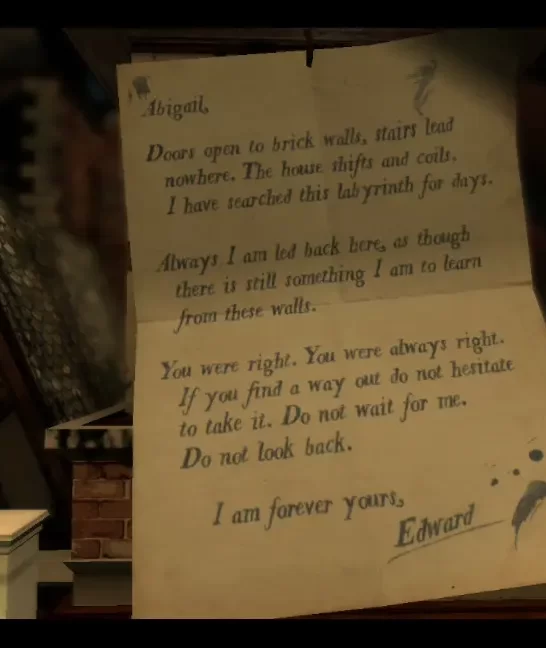 Abigail,
Doors open to brick walls, stairs lead
nowhere. The house shifts and coils.
I have searched this labyrinth for days.
Always I am led back here, as though
there is still something I am to learn
from these walls.
You were right. You were always right.
If you find a way out do not hesitate
to take it. Do not wait for me.
Do not look back.
I am forever yours,
Edward